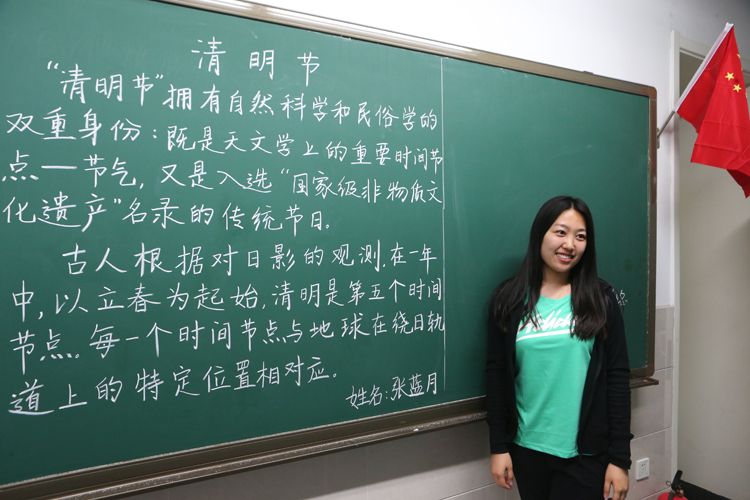 清明节
"清明节"拥有自然科学和民俗学的
双重身份：既是天文学上的重要时间节
点—节气，又是入选"国家级非物质文
化遗产"名录的传统节日。
古人根据对日影的观测，在一年
中，以立春为起始，清明是第五个时间
节点。每一个时间节点与地球在绕日轨
道上的特定位置相对应。
姓名：张蓝月